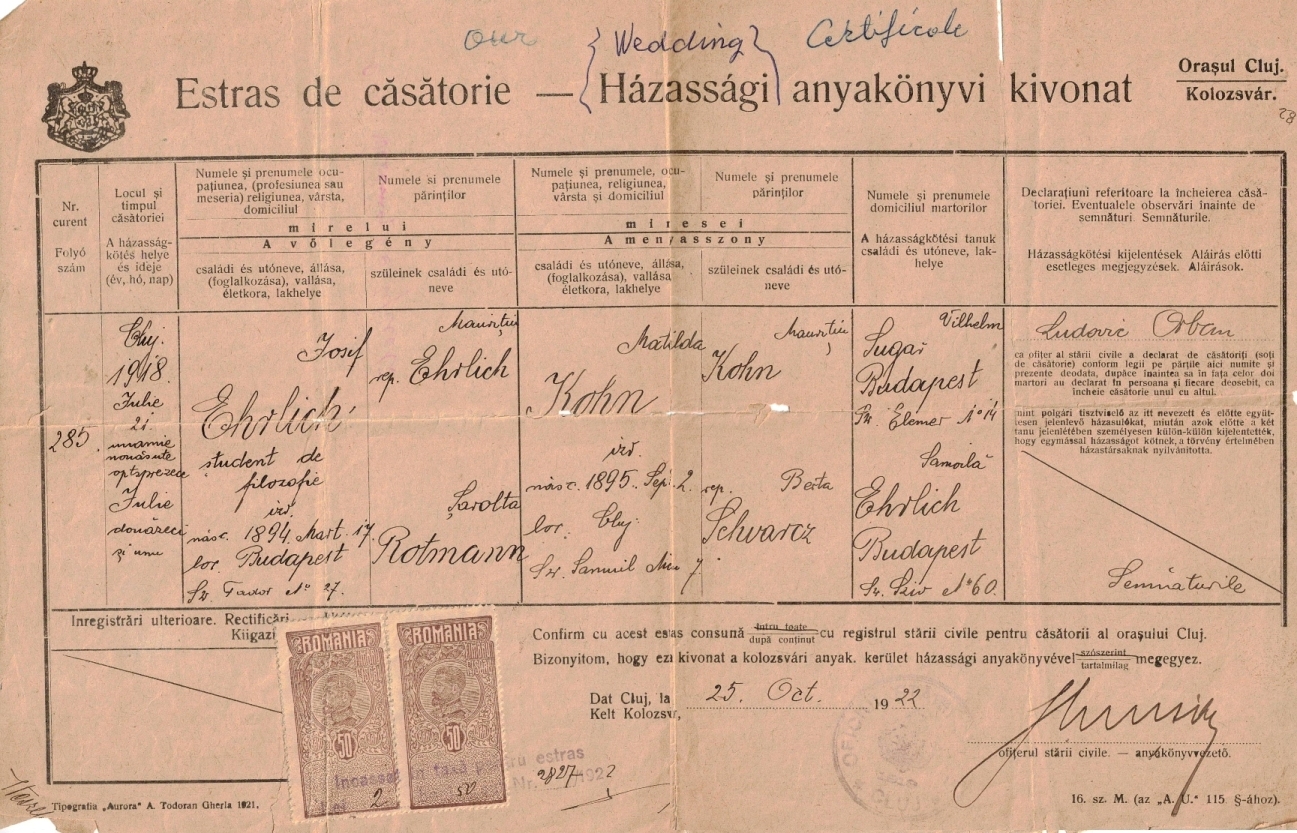 Our Wedding Certificate
Estras de căsătorie — Házassági anyakönyvi kivonat
Orașul Cluj.
Kolozsvár.
28
Nr.
curent
Folyó
szám
Locul și
timpul
căsătoriei
A házasság-
kötés helye
és ideje
(év, hó, nap)
Numele și prenumele ocu-
pațiunea, (profesiunea sau
meseria) religiunea, vârsta,
domiciliul
Numele si prenumele
părinților
mirelui
A vőlegény
családi és utóneve, állása,
(foglalkozása), vallása,
életkora, lakhelye
szüleinek családi és utó-
neve
Numele și prenumele, ocu-
pațiunea, religiunea,
vârsta și domiciliul
Numele și prenumele
părinților
miresei
A menyasszony
családi és utóneve, állása,
(foglalkozása), vallása,
életkora, lakhelye
szüleinek családi és utó-
neve
Numele și prenumele
domiciliul martorilor
A házasságkötési tanuk
családi és utóneve, lak-
helye
Declarațiuni referitoare la încheierea căsă-
toriei. Eventualele observări înainte de
semnături. Semnăturile.
Házasságkötési kijelentések Aláírás előtti
esetleges megjegyzések. Aláírások.
285.
Cluj.
1918.
Iulie
21.
unamie
nouăsute
optsprezece
Iulie
douăzeci
și unu
Iosif
Ehrlich
student de
filozofie
izr.
născ. 1894. Mart. 17
loc. Budapest
Str. Tador No 27.
Maurițiu
rep. Ehrlich
Șarolta
Rotmann
Matilda
Kohn
izr.
născ. 1895. Sept. 2.
loc. Cluj
Str. Samuil Micu 7.
Maurițiu
Kohn
rep. Berta
Schvarcz
Vilhelm
Sugar
Budapest
Str. Elemer No 14
Samoilă
Ehrlich
Budapest
Str. Sziv No 60.
Ludovic Orban
ca ofițer al stării civile a declarat de căsătoriți (soți
de căsătorie) conform legii pe părțile aici numite și
prezente deodata, dupăce înaintea sa în fața celor doi
martori au declarat în persoana și fiecare deosebit, ca
încheie căsătorie unul cu altul.
mint polgári tisztviselő az itt nevezett és előtte együt-
tesen jelenlevő házasulókat, miután azok előtte a két
tanu jelenlétében személyesen külön-külön kijelentették,
hogy egymással házasságot kötnek, a törvény értelmében
házastársaknak nyilvánította.
Semnăturile
Inregistrări ulterioare. Rectificări
Kiigazí
ROMANIA
50
ROMANIA
50
Incassat în taxă pentru estras
Lei 2 50 Nr. 2827 1922
Confirm cu acest estras consună întru toate / după conținut cu registrul stării civile pentru căsătorii al orașului Cluj.
Bizonyitom, hogy ezi kivonat a kolozsvári anyak. kerület házassági anyakönyvével szószerint / tartalmilag megegyez.
Dat Cluj, la
Kelt Kolozsvr,
25. Oct. 1922
ofițerul stării civile. — anyakönyvvezető.
Tipografia „Aurora" A. Todoran Gherla 1921.
16. sz. M. (az „A. U." 115 §-ához).